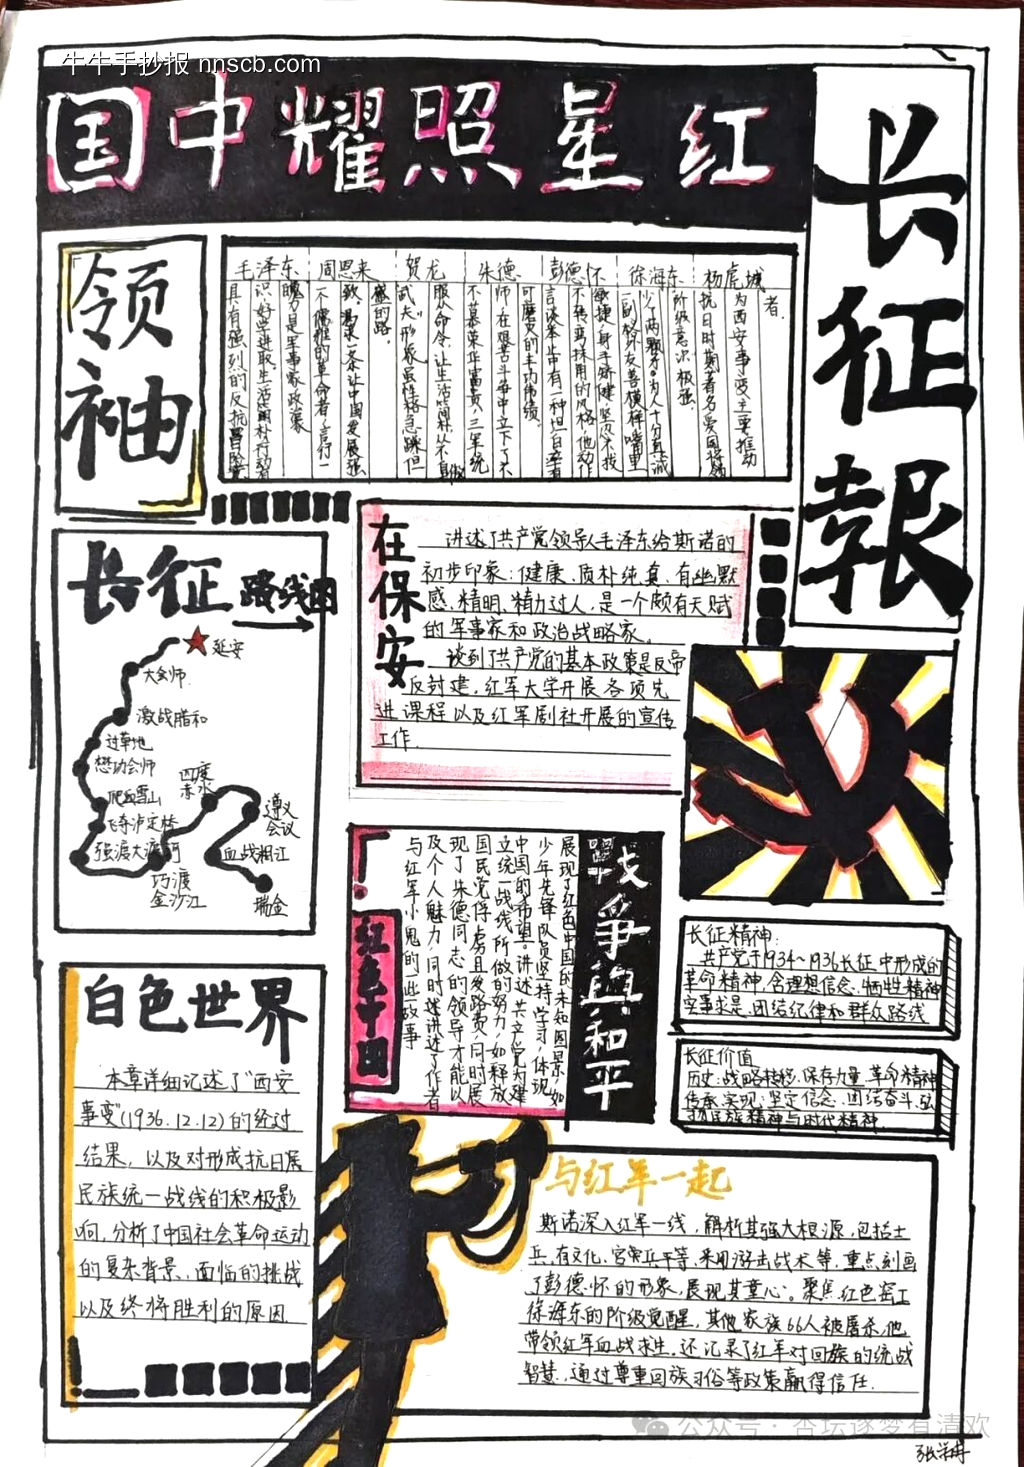 牛牛手抄报 nnscb.com
国中耀照星红
长征報
领袖
毛泽东
具有强烈的反抗冒险
识,好学进取,生活简朴
魄力是军事家政治家
周恩来
一个儒雅的革命者,言行一
致
贺龙
武夫"形象虽性格急躁但
服从命令,让生活简朴从不自
朱德
不慕荣华富贵,三军统
师,在艰苦斗争中立下了不
可磨灭的丰功伟绩。
彭德怀
言谈举止中有一种坦白率真
不转弯抹角的风格,他动作
敏捷,身手矫健,坚贞
徐海东
少了两颗牙,为人十分真诚
阶级意识极强。
杨虎城
抗日时期著名爱国将领
为西安事变主要推动
者.
长征路线图
延安
大会师.
激战腊和
过草地
懋功会师
爬雪山
飞夺泸定桥
强渡大渡河
巧渡
金沙江
四渡
赤水
遵义
会议
血战湘江
瑞金
在保安
讲述了共产党领导人毛泽东给斯诺的
初步印象:健康、质朴纯真、有幽默
感、精明、精力过人,是一个颇有天赋
的军事家和政治战略家。
谈到了共产党的基本政策是反帝
反封建,红军大学开展各项先
进课程以及红军剧社开展的宣传
工作.
战争與和平
展现了红色中国的未知图景,如
少年先锋队员坚持学习,体现
中国的希望;讲述共产党为建
立统一战线所做的努力,如释放
国民党俘虏且发路费,同时展
现了朱德同志的领导才能以
及个人魅力,同时还讲述了作者
与红军小鬼的一些故事
红色中国
长征精神:
共产党于1934~1936长征中形成的
革命精神,含理想信念、牺牲精神
实事求是、团结纪律和群众路线
长征价值
历史:战略转移、保存力量、革命精神
传承,实现:坚定信念、团结奋斗、弘
扬民族精神与时代精神.
白色世界
本章详细记述了"西安
事变"(1936.12.12)的经过
结果,以及对形成抗日民
民族统一战线的积极影
响,分析了中国社会革命运动
的复杂背景、面临的挑战
以及终将胜利的原因.
与红军一起
斯诺深入红军一线,解析其强大根源,包括士
兵,有文化、官兵平等、采用游击战术等,重点刻画
了彭德怀的形象,展现其童心。聚焦红色窑工
徐海东的阶级觉醒,其他家族66人被屠杀,他
带领红军血战求生,还记录了红军对回族的统战
智慧,通过尊重回族习俗等政策赢得信任.
公众号·杏坛逐梦有清欢